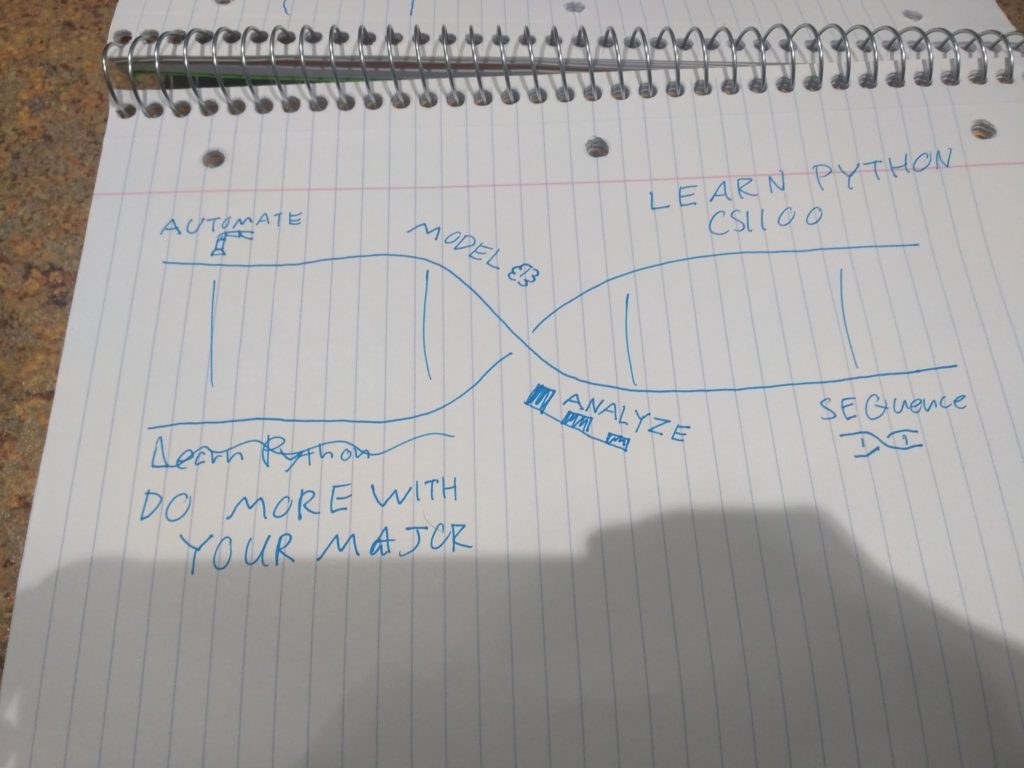 AUTOMATE
MODEL
LEARN PYTHON
CS1100
ANALYZE
SEQuence
Learn Python
DO MORE WITH
YOUR MAJOR